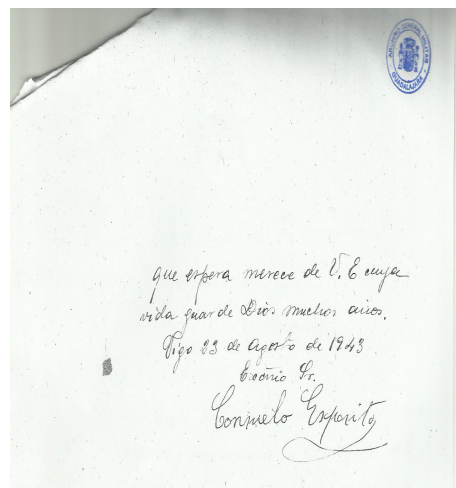 ARCHIVO GENERAL MILITAR
GUADALAJARA
que espera merece de V. E cuya
vida guarde Dios muchos años.
Vigo 23 de Agosto de 1943
Excmo Sr.
Consuelo Exposito